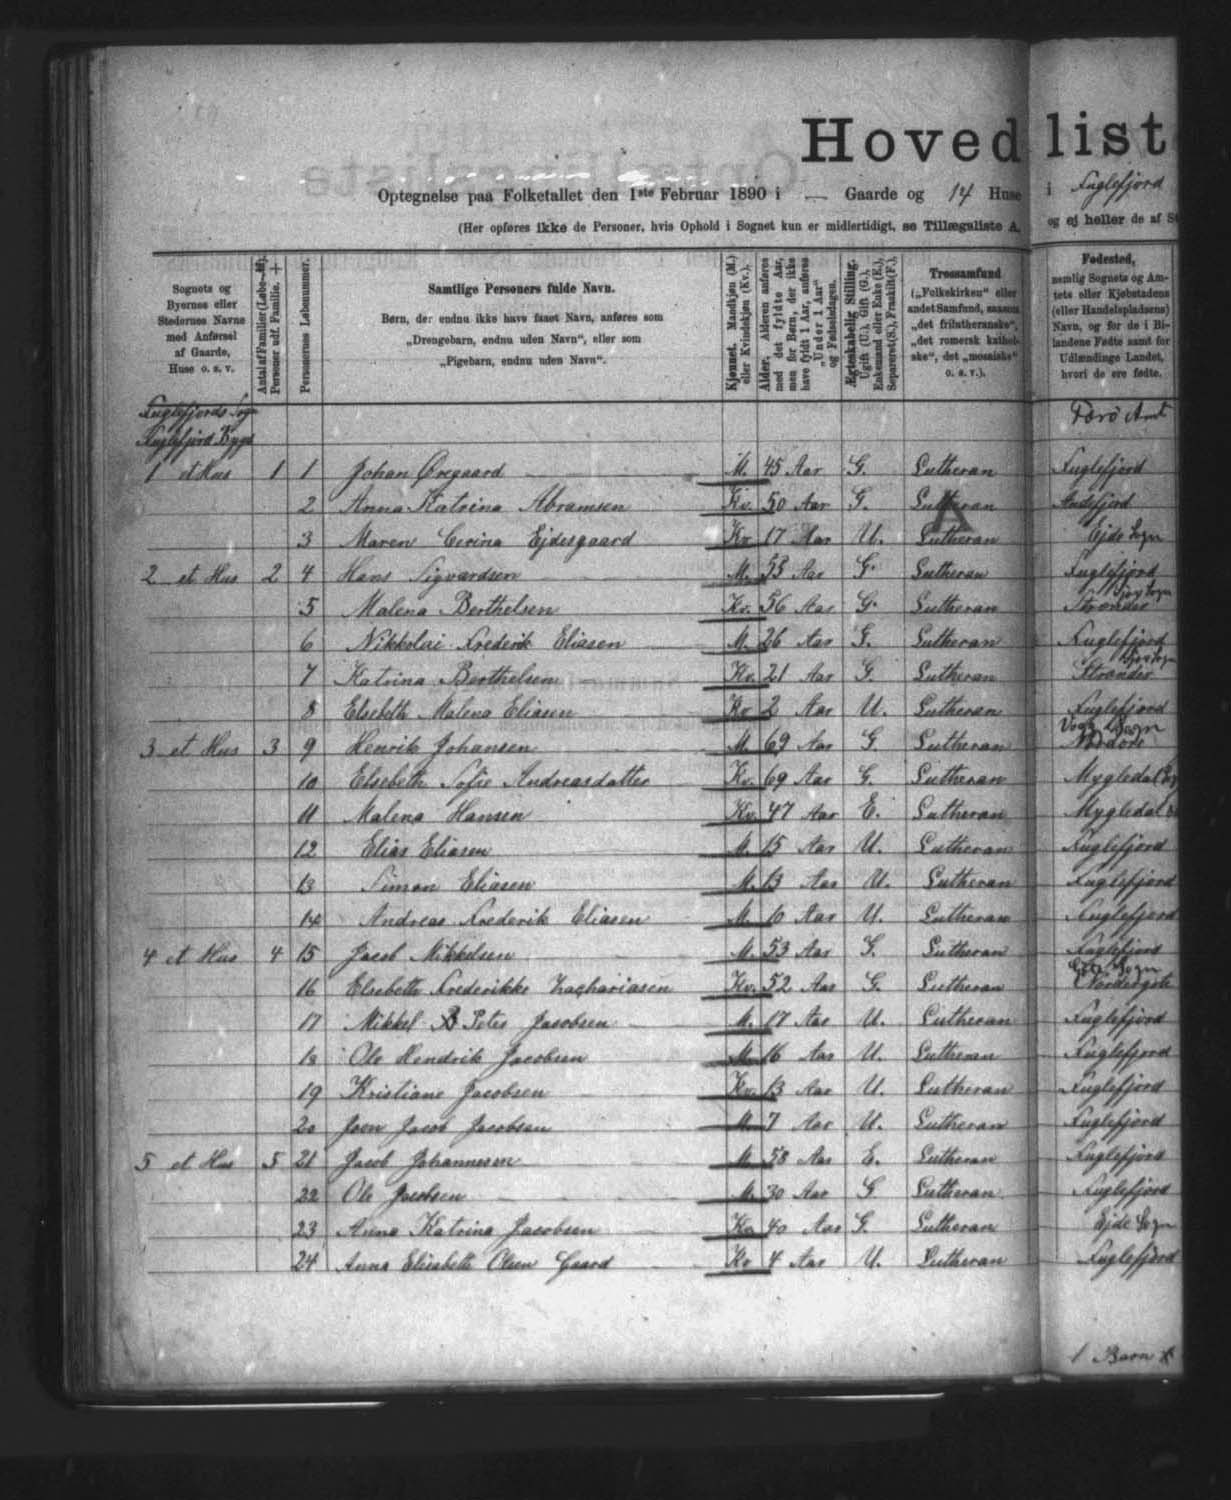 Hovedliste
Optegnelse paa Folketallet den 1ste Februar 1890 i — Gaarde og 14 Huse i Fuglefjord
(Her opføres ikke de Personer, hvis Ophold i Sognet kun er midlertidigt, se Tillægsliste A, og ej heller de af
Sognets og Byernes eller Stedernes Navne med Anførsel af Gaarde, Huse o. s. v.
Antal af Familier (Løbe-№). Personer udf. Familie. +
Personernes Løbenummer.
Samtlige Personers fulde Navn.
Børn, der endnu ikke have faaet Navn, anføres som „Drengebarn, endnu uden Navn“, eller som „Pigebarn, endnu uden Navn“.
Kjønnet. Mandkjøn (M.) eller Kvindekjøn (Kv.).
Alder. Alderen anføres med det fyldte Aar, men for Børn, der ikke have fyldt 1 Aar, anføres „Under 1 Aar“ og Fødselsdagen.
Ægteskabelig Stilling. Ugift (U.), Gift (G.), Enkemand eller Enke (E.), Separeret (S.), Fraskilt (F.).
Trossamfund („Folkekirken“ eller andet Samfund, saasom „det frilutheranske“, „det romersk katholske“, det „mosaiske“ o. s. v.).
Fødested, nemlig Sognets og Amtets eller Kjøbstadens (eller Handelspladsens) Navn, og for de i Bilandene Fødte samt for Udlændinge Landet, hvori de ere fødte.
Fuglefjords Sogn Færö Amt
Fuglefjord Bygd
1 et Hus 1 1 Johan Øregaard M. 45 Aar G. Lutheran Fuglefjord
2 Anna Katrina Abramsen Kv. 50 Aar G. Lutheran Andefjord
A
3 Maren Cecina Ejdesgaard Kv. 17 Aar U. Lutheran Ejde Sogn
2 et Hus 2 4 Hans Sigvardsen M. 53 Aar G. Lutheran Fuglefjord
5 Malena Berthelsen Kv. 56 Aar G. Lutheran Strænder
6 Nikkolai Frederik Eliasen M. 26 Aar G. Lutheran Fuglefjord
7 Katrina Berthelsen Kv. 21 Aar G. Lutheran Strænder
8 Elsebeth Malena Eliasen Kv 2 Aar U. Lutheran Fuglefjord
3 et Hus 3 9 Henrik Johansen M. 69 Aar G. Lutheran
10 Elsebeth Sofie Andreasdatter Kv. 69 Aar G. Lutheran Mygledal
11 Malena Hansen Kv. 47 Aar E. Lutheran Mygledal
12 Elias Eliasen M. 15 Aar U. Lutheran Fuglefjord
13 Simon Eliasen M. 13 Aar U. Lutheran Fuglefjord
14 Andreas Frederik Eliasen M. 10 Aar U. Lutheran Fuglefjord
4 et Hus 4 15 Jacob Mikkelsen M. 53 Aar G. Lutheran Fuglefjord
16 Elsebeth Frederikke Zachariasen Kv. 52 Aar G. Lutheran Nordregöte
17 Mikkel Peter Jacobsen M. 17 Aar U. Lutheran Fuglefjord
18 Ole Hendrik Jacobsen M. 16 Aar U. Lutheran Fuglefjord
19 Kristiane Jacobsen Kv. 13 Aar U. Lutheran Fuglefjord
20 Joen Jacob Jacobsen M. 7 Aar U. Lutheran Fuglefjord
5 et Hus 5 21 Jacob Johannesen M. 58 Aar E. Lutheran Fuglefjord
22 Ole Jacobsen M. 30 Aar G Lutheran Fuglefjord
23 Anna Katrina Jacobsen Kv. 40 Aar G. Lutheran Ejde Sogn
24 Anna Elisabeth Olsen Gaard Kv 4 Aar U. Lutheran Fuglefjord
1 Barn